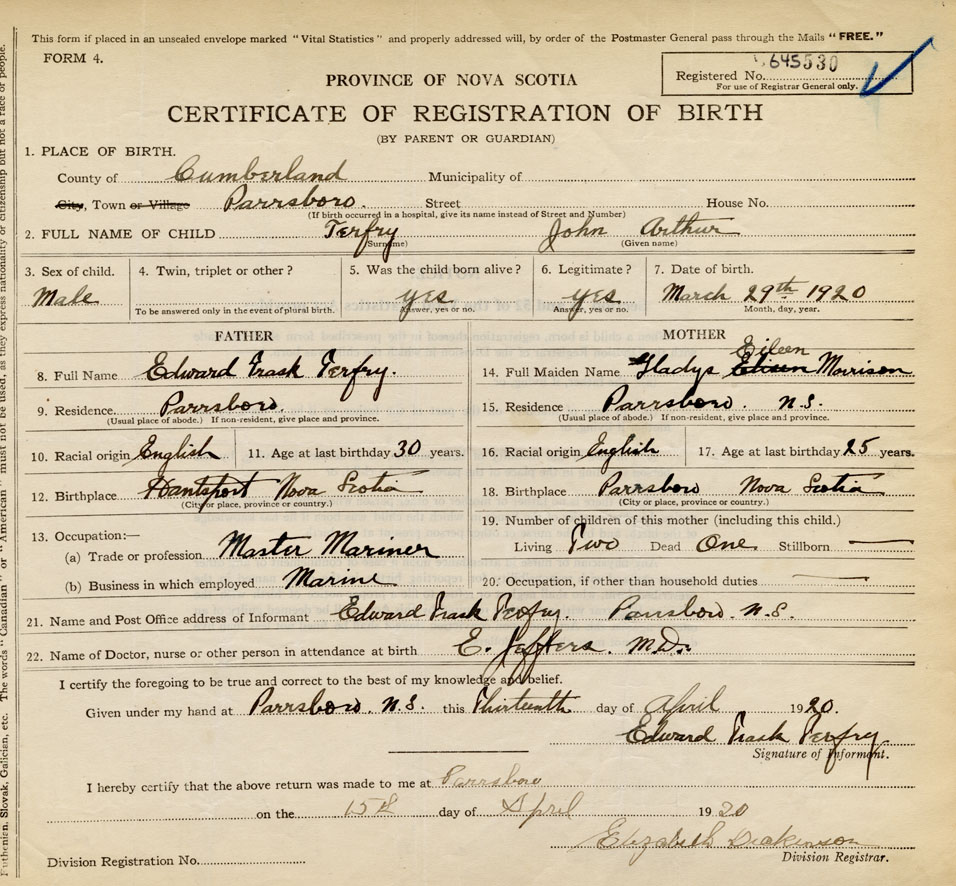 This form if placed in an unsealed envelope marked "Vital Statistics" and properly addressed will, by order of the Postmaster General pass through the Mails "FREE."
FORM 4.
645530
Registered No.
For use of Registrar General only.
PROVINCE OF NOVA SCOTIA
CERTIFICATE OF REGISTRATION OF BIRTH
(BY PARENT OR GUARDIAN)
1. PLACE OF BIRTH.
County of Cumberland Municipality of
City, Town or Village Parrsboro. Street House No.
(If birth occurred in a hospital, give its name instead of Street and Number)
2. FULL NAME OF CHILD Terfry John Arthur
(Surname) (Given name)
3. Sex of child. 4. Twin, triplet or other? 5. Was the child born alive? 6. Legitimate? 7. Date of birth.
Male yes yes March 29th 1920
To be answered only in the event of plural birth. Answer, yes or no. Answer, yes or no. Month, day, year.
FATHER MOTHER
Eileen
8. Full Name Edward Trask Terfry. 14. Full Maiden Name Gladys Morrison
9. Residence. Parrsboro. 15. Residence Parrsboro. N.S.
(Usual place of abode.) If non-resident, give place and province. (Usual place of abode.) If non-resident, give place and province.
10. Racial origin English 11. Age at last birthday 30 years. 16. Racial origin English 17. Age at last birthday 25 years.
12. Birthplace Hantsport Nova Scotia 18. Birthplace Parrsboro Nova Scotia
(City or place, province or country.) (City or place, province or country.)
13. Occupation:— 19. Number of children of this mother (including this child.)
(a) Trade or profession Master Mariner Living Two Dead One Stillborn —
(b) Business in which employed Marine 20. Occupation, if other than household duties —
21. Name and Post Office address of Informant Edward Trask Terfry. Parrsboro. N.S.
22. Name of Doctor, nurse or other person in attendance at birth E. Jeffers. M.D.
I certify the foregoing to be true and correct to the best of my knowledge and belief.
Given under my hand at Parrsboro. N.S. this Thirteenth day of April 1920.
Edward Trask Terfry
Signature of Informant.
I hereby certify that the above return was made to me at Parrsboro
on the 15th day of April 1920
Elizabeth Dickinson
Division Registrar.
Division Registration No.
Ruthenian, Slovak, Galician, etc. The words "Canadian" or "American" must not be used, as they express nationality or citizenship but not a race or people.